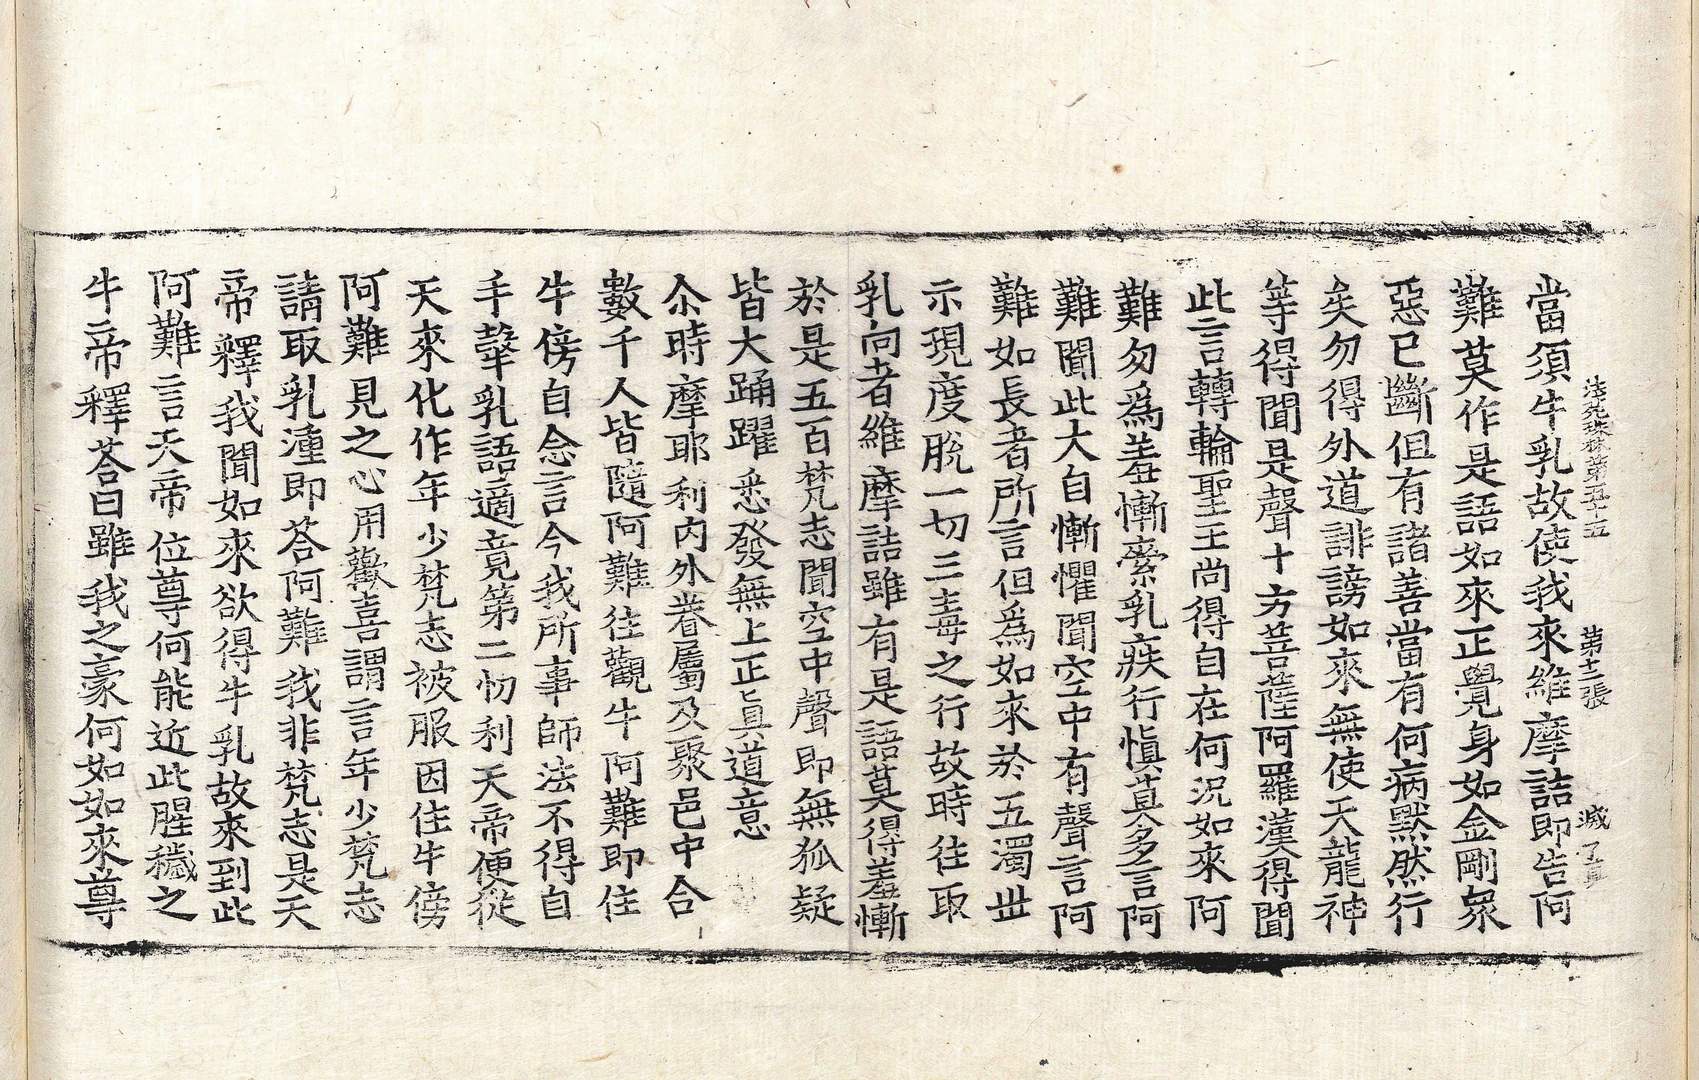 法苑珠林第五十五 第十二張 滅
當須牛乳故使我來維摩詰即告阿
難莫作是語如來正覺身如金剛衆
惡已斷但有諸善當有何病默然行
矣勿得外道誹謗如來無使天龍神
等得聞是聲十方菩薩阿羅漢得聞
此言轉輪聖王尚得自在何況如來阿
難勿爲羞慚索乳疾行慎莫多言阿
難聞此大自慚懼聞空中有聲言阿
難如長者所言但爲如來於五濁世
示現度脫一切三毒之行故時往取
乳向者維摩詰雖有是語莫得羞慚
於是五百梵志聞空中聲即無狐疑
皆大踊躍悉發無上正眞道意
尒時摩耶利內外眷屬及聚邑中合
數千人皆隨阿難往觀牛阿難即住
牛傍自念言今我所事師法不得自
手𤚲乳語適竟第二忉利天帝便從
天來化作年少梵志被服因住牛傍
阿難見之心用歡喜謂言年少梵志
請取乳湩即荅阿難我非梵志是天
帝釋我聞如來欲得牛乳故來到此
阿難言天帝位尊何能近此腥穢之
牛帝釋荅曰雖我之豪何如如來尊